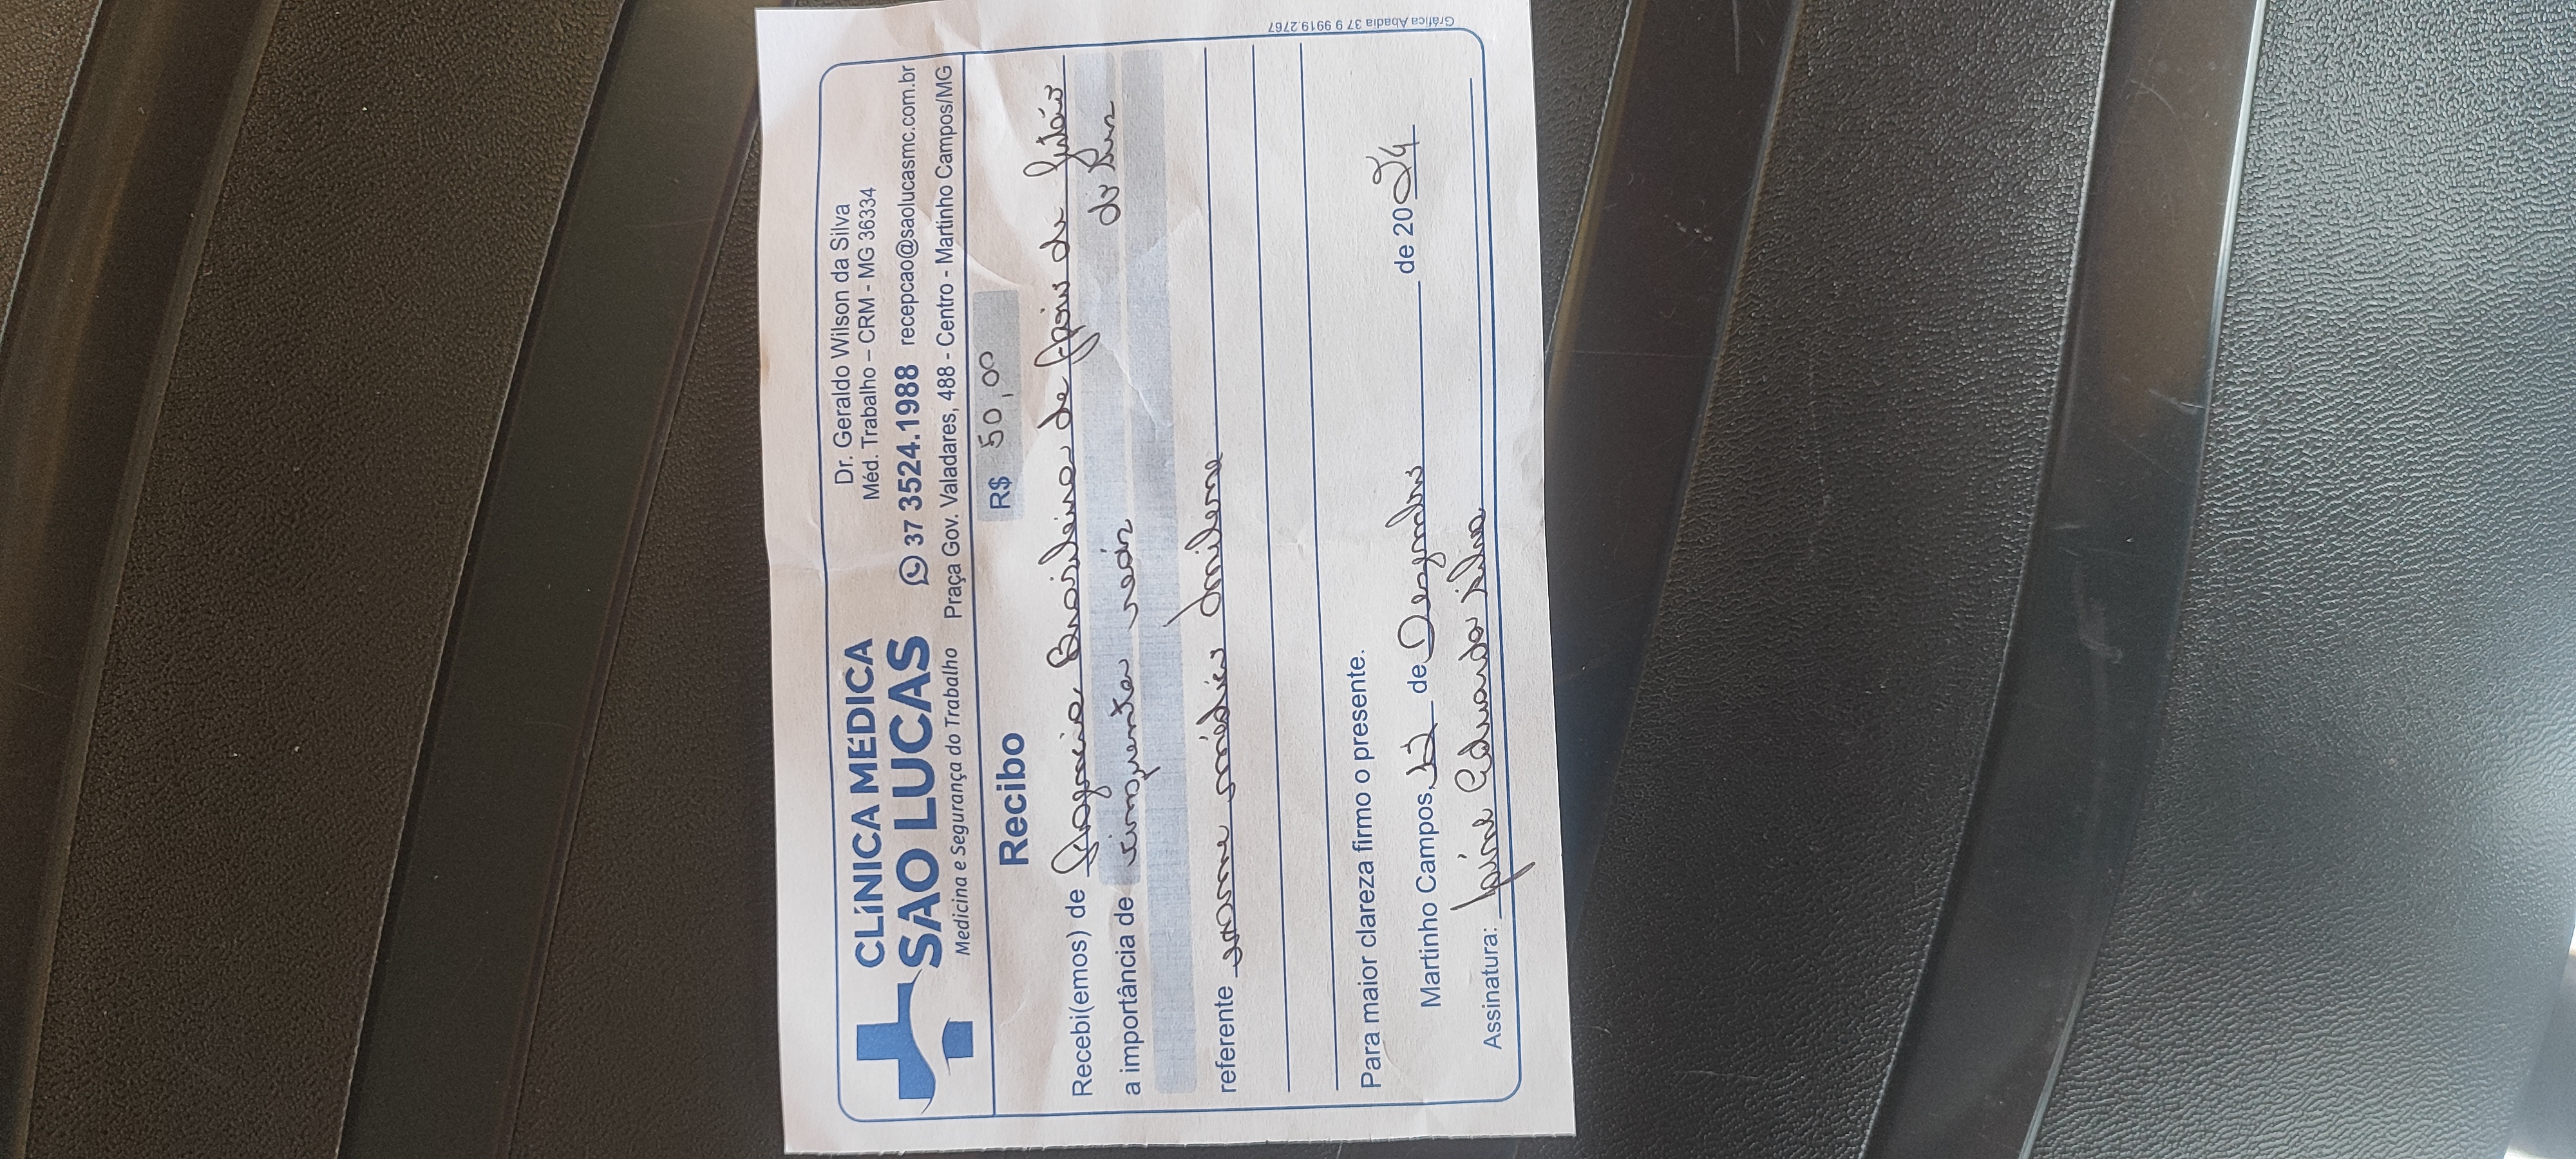 CLÍNICA MÉDICA
SÃO LUCAS
Medicina e Segurança do Trabalho
Dr. Geraldo Wilson da Silva
Méd. Trabalho – CRM - MG 36334
37 3524.1988 recepcao@saolucasmc.com.br
Praça Gov. Valadares, 488 - Centro - Martinho Campos/MG
Recibo
R$ 50,00
Recebi(emos) de Brasileira de de
a importância de cinquenta reais
referente exame médico
Para maior clareza firmo o presente.
Martinho Campos, 12 de Dezembro de 2024
Assinatura: Eduarda Silva
Gráfica Abadia 37 9 9919.2767